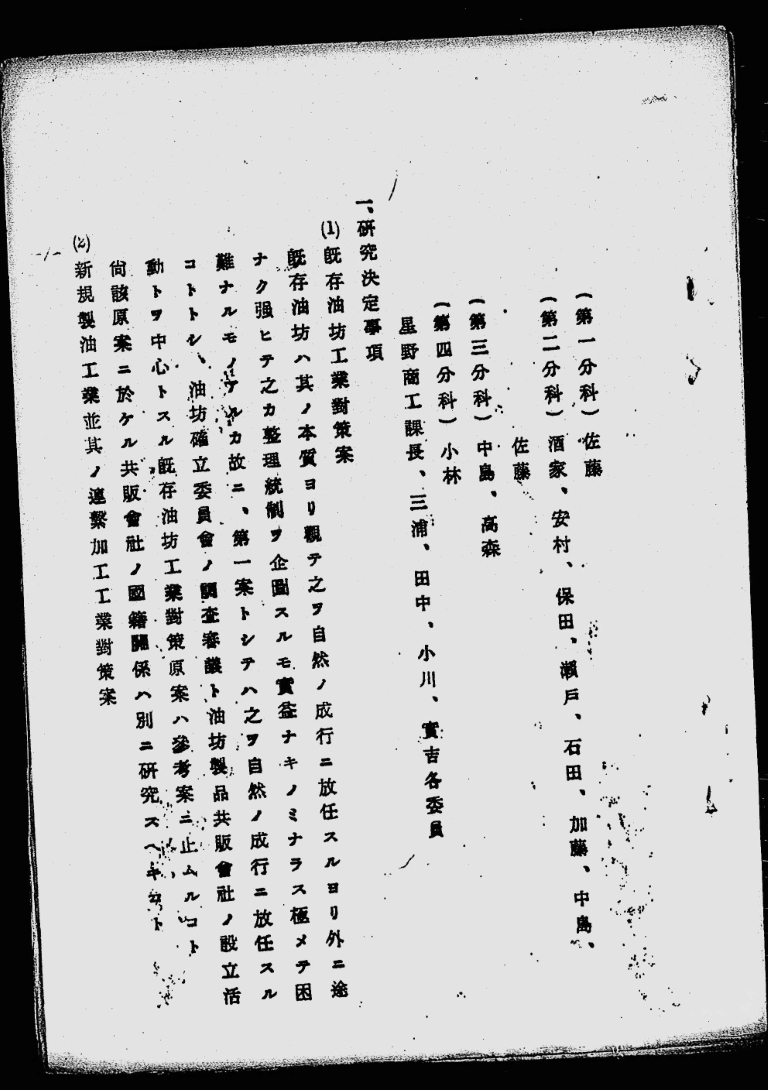 (第一分科) 佐藤
(第二分科) 酒家、安村、保田、瀬戸、石田、加藤、中島、
佐藤
(第三分科) 中島、高森
(第四分科) 小林
星野商工課長、三浦、田中、小川、實吉各委員
一、研究決定事項
(1) 既存油坊工業對策案
既存油坊ハ其ノ本質ヨリ觀テ之ヲ自然ノ成行ニ放任スルヨリ外ニ途
ナク强ヒテ之カ整理統制ヲ企圖スルモ實益ナキノミナラス極メテ困
難ナルモノアルカ故ニ、第一案トシテハ之ヲ自然ノ成行ニ放任スル
コトトシ、油坊確立委員會ノ調査審議ト油坊製品共販會社ノ設立活
動トヲ中心トスル既存油坊工業對策原案ハ參考案ニ止ムルコト
尙該原案ニ於ケル共販會社ノ國籍關係ハ別ニ研究スヘキコト
(2) 新規製油工業並其ノ連繫加工工業對策案